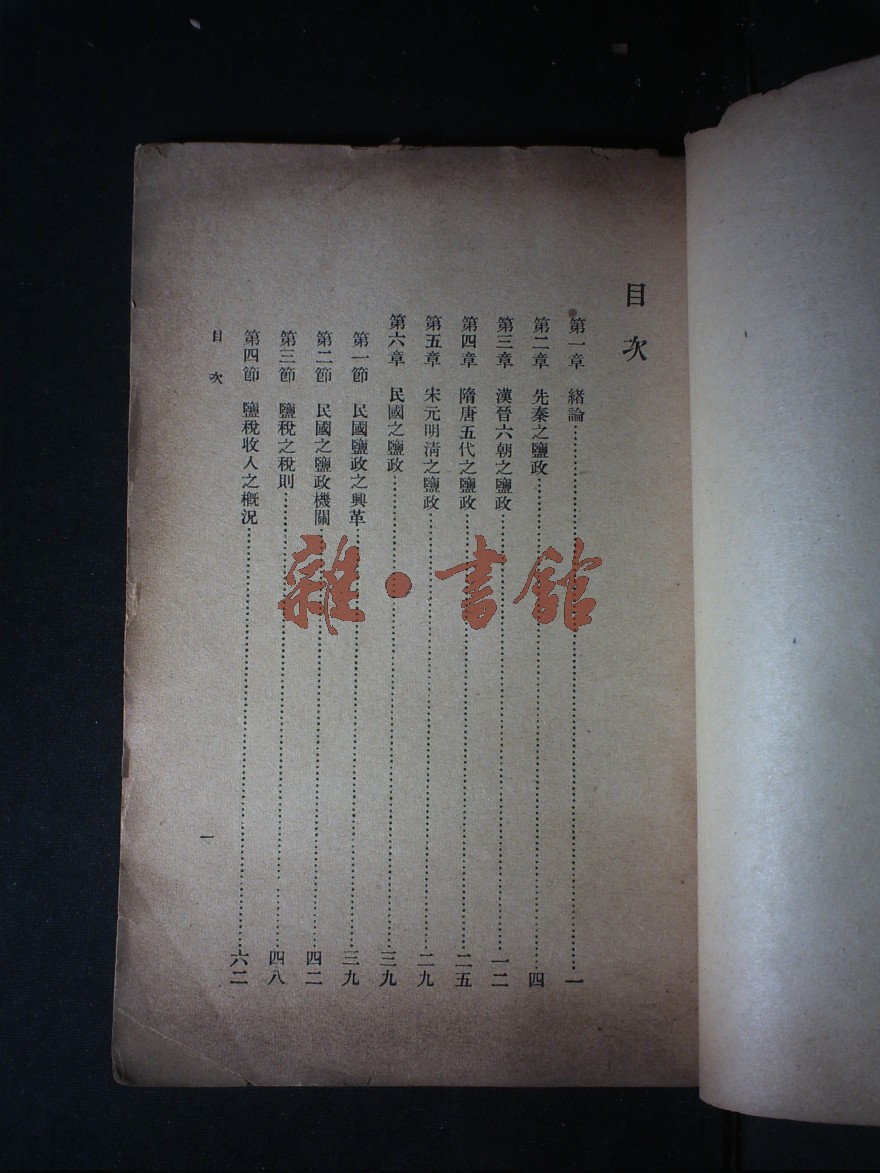 目次
第一章 緒論…………一
第二章 先秦之鹽政…………四
第三章 漢晉六朝之鹽政…………一二
第四章 隋唐五代之鹽政…………二五
第五章 宋元明清之鹽政…………二九
第六章 民國之鹽政…………三九
第一節 民國鹽政之興革…………三九
第二節 民國之鹽政機關…………四二
第三節 鹽稅之稅則…………四八
第四節 鹽稅收入之概況…………六二
目次
一
雜·書館